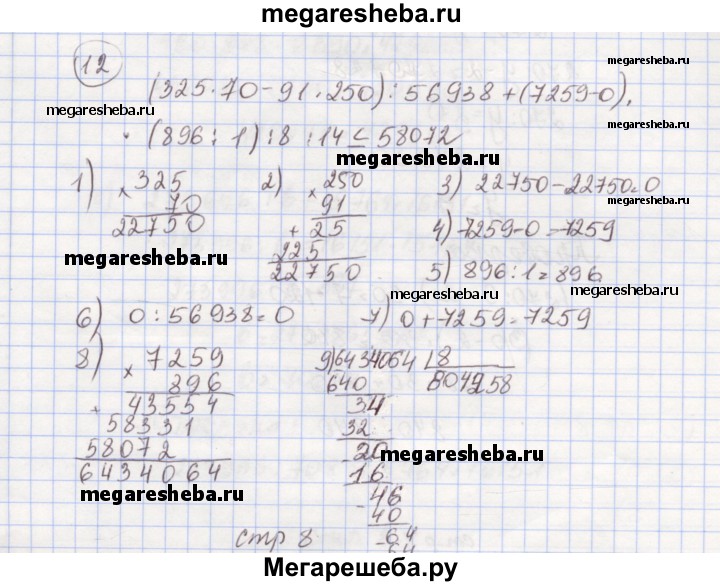 megaresheba.ru
12
(325·70-91·250):56938+(7259-0)·
megaresheba.ru
megaresheba.ru
·(896:1):8:14= 58072
megaresheba.ru
1) × 325
70
22750
2) × 250
91
+ 25
225
22750
3) 22750-22750=0
megaresheba.ru
4) 7259-0=7259
5) 896:1=896
megaresheba.ru
6) 0:56938=0
7) 0+7259=7259
megaresheba.ru
8) × 7259
896
+ 43554
58331
58072
6434064
9) 6434064 8
640
34
32
-20
16
-46
40
-64
64
megaresheba.ru
megaresheba.ru
стр 8
Мегарешеба.ру